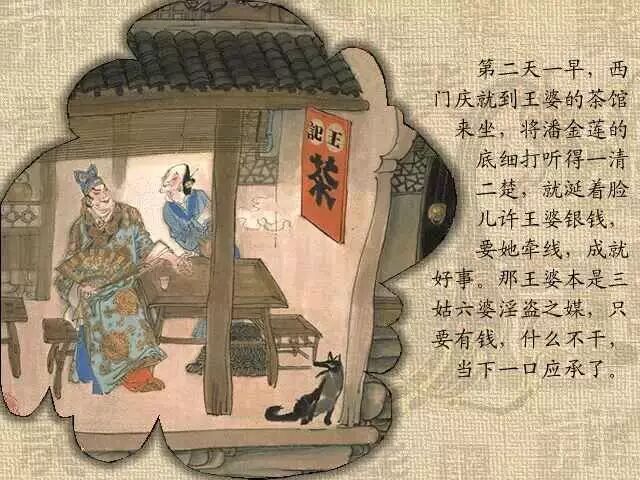 第二天一早，西
门庆就到王婆的茶馆
来坐，将潘金莲的
底细打听得一清
二楚，就涎着脸
儿许王婆银钱，
要她牵线，成就
好事。那王婆本是三
姑六婆淫盗之媒，只
要有钱，什么不干，
当下一口应承了。
王記
茶